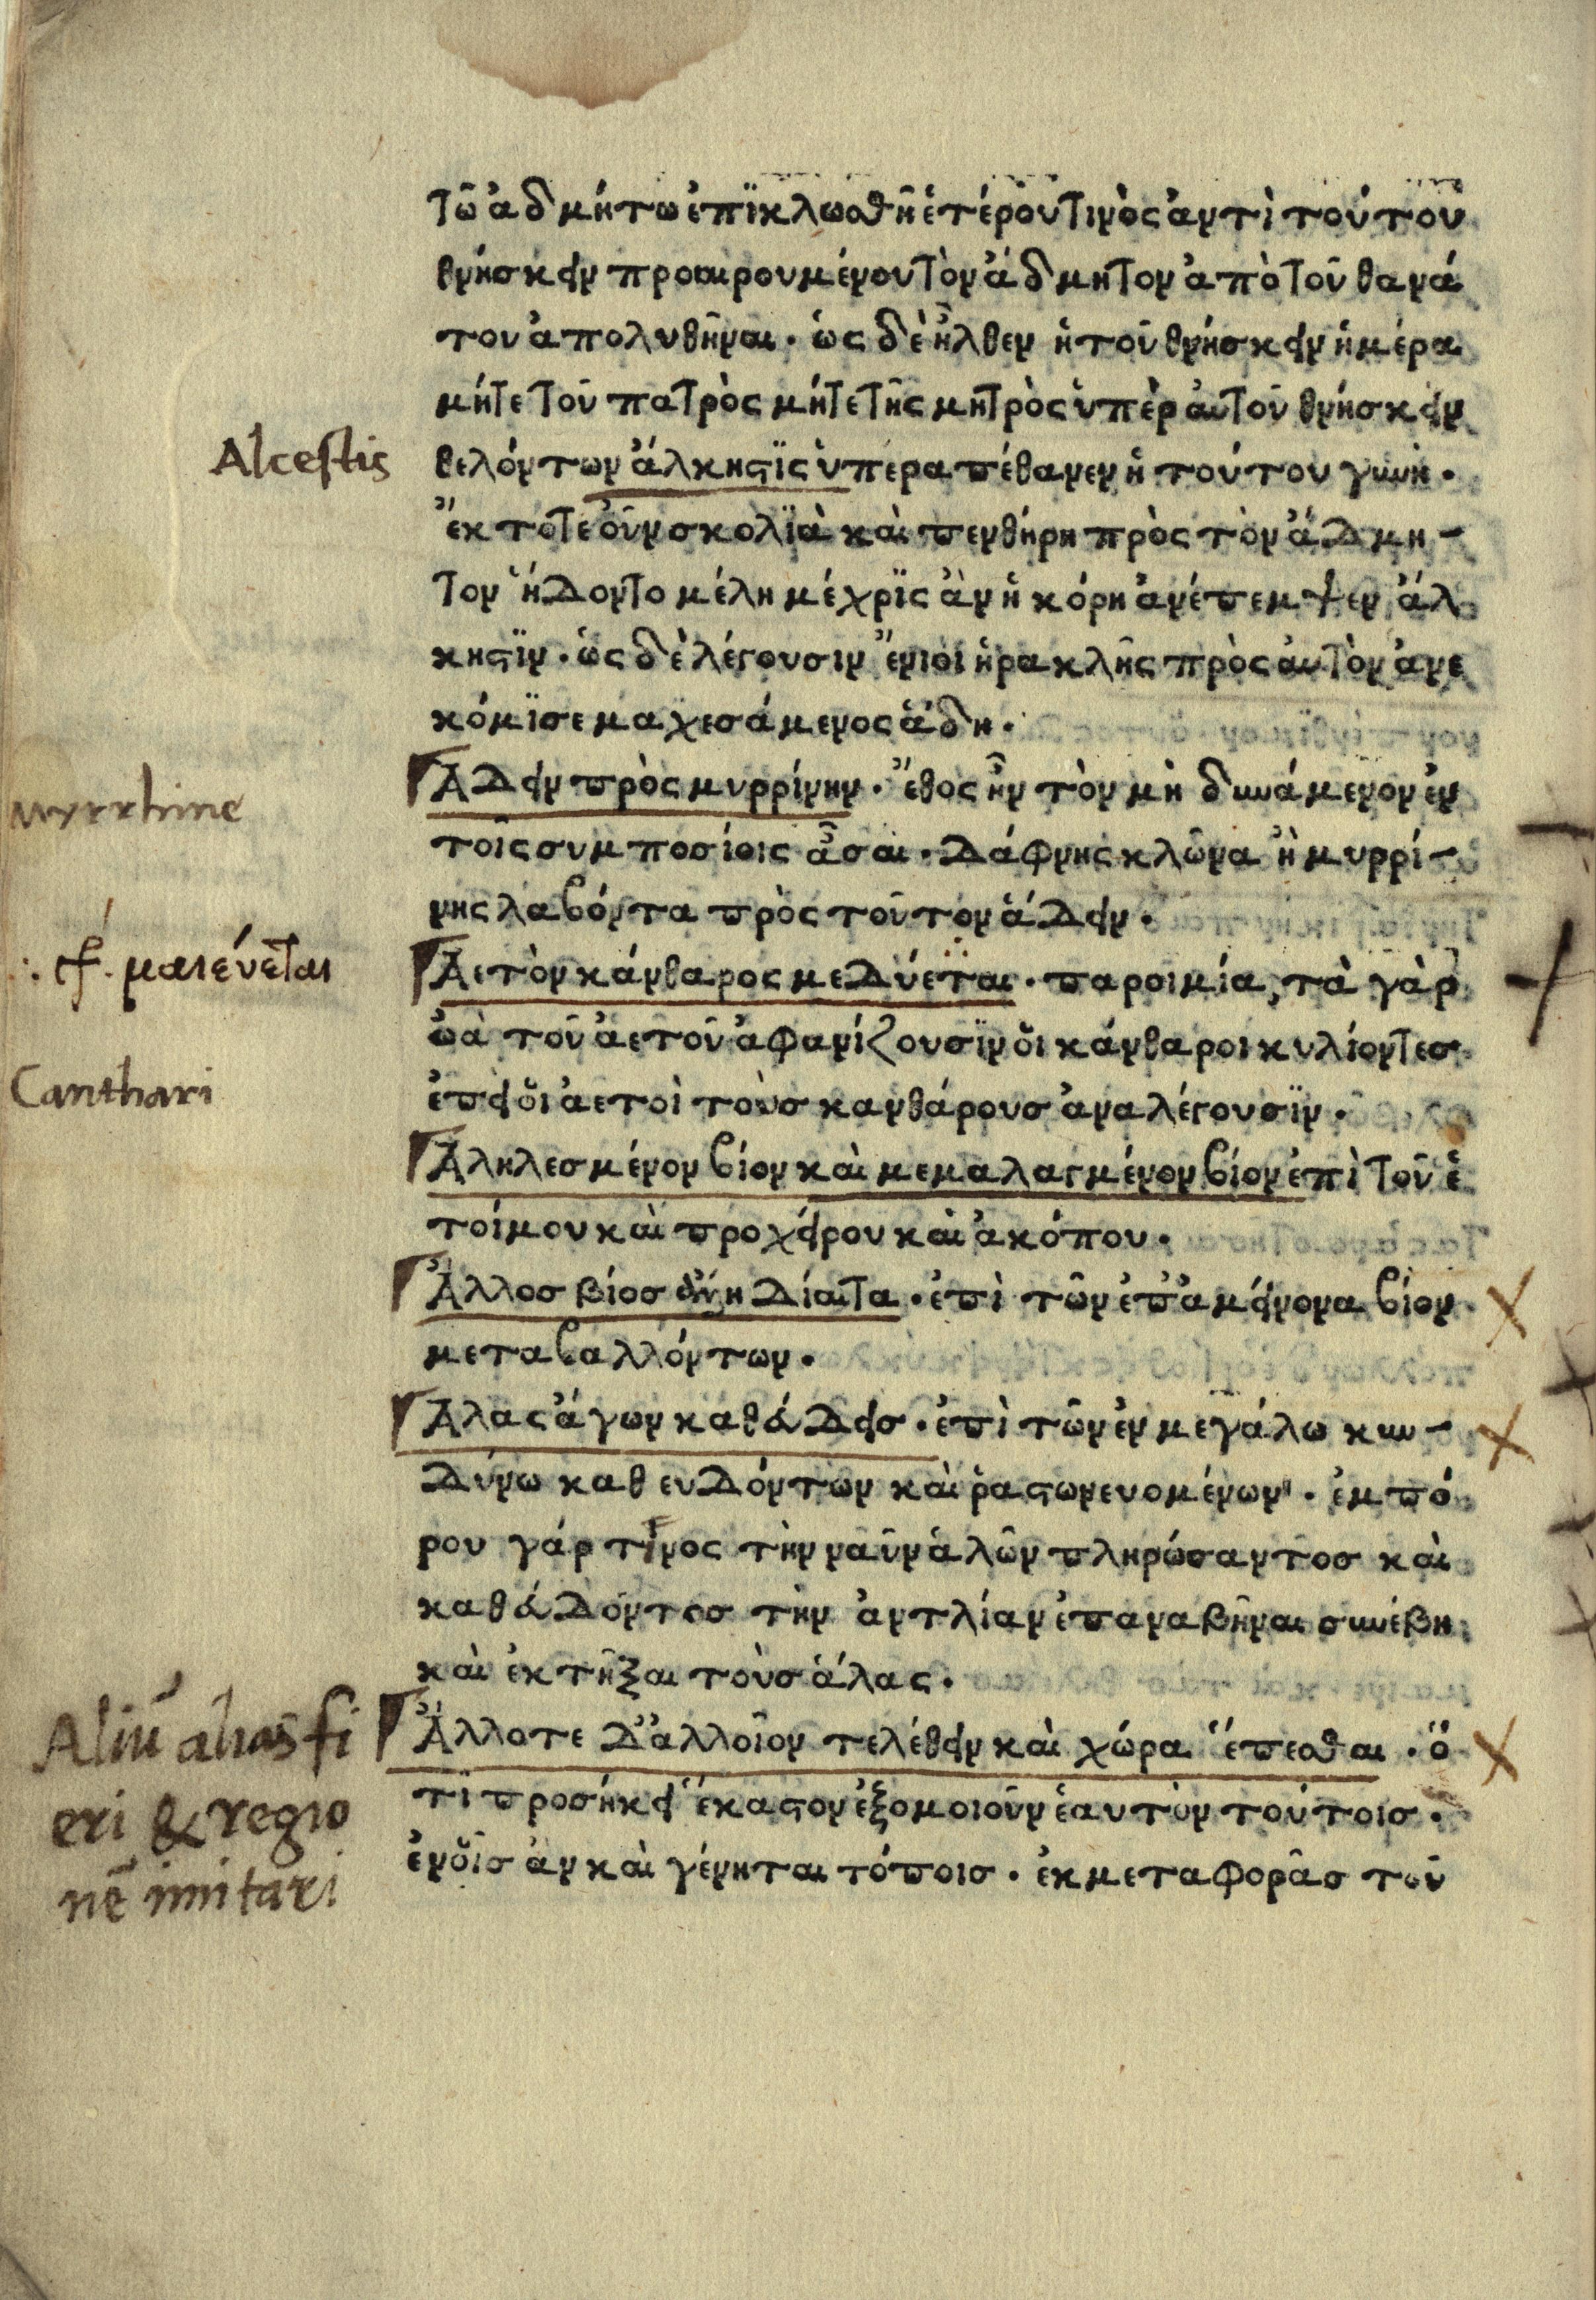 τῶ ἀδμήτω ἐπϊκλωσθῆ ἑτέρου τινὸς ἀντὶ τούτου
θνήσκειν προαιρουμένου τὸν ἄδμητον ἀπὸ τοῦ θανά
του ἀπολυθῆναι . ὡς δὲ ἦλθεν ἡ τοῦ θνήσκειν ἡμέρα
μήτε τοῦ πατρὸς μήτε τῆς μητρὸς ὑπὲρ αὐτοῦ θνήσκειν
Alcestis
θελόντων ἄλκηστϊς ὑπεραπέθανεν ἡ τούτου γυνὴ .
Ἔκτοτε οὖν σκολϊὰ καὶ πενθήρη πρὸς τὸν ἄδμη-
τον ἤδοντο μέλη μέχρϊς ἂν ἡ κόρη ἀνέπεμψεν ἄλ
κηστϊν . ὡς δὲ λέγουσιν ἔνιοι ἡρακλῆς πρὸς ἀυτὸν ἀνε
κόμϊσε μαχεσάμενος ἅδη .
Myrrhine
Ἄδειν πρὸς μυρρίνην . ἔθος ἦν τὸν μὴ δυνάμενον ἐν
τοῖς συμποσίοις ἆσαι . δάφνης κλῶνα ἢ μυρρί-
νης λαβόντα πρὸς τοῦτον ἄδειν .
∴ cf. μαιένεται
Ἀετὸν κάνθαρος μεδύεται . παροιμία, τὰ γὰρ
ὠὰ τοῦ ἀετοῦ ἀφανίζουσϊν ὅι κάνθαροι κυλίοντεσ
Canthari
ἐπεὶ ὅι ἀετοὶ τοὺσ κανθάρουσ ἀναλέγουσϊν .
Ἀληλεσμένον βίον καὶ μεμαλαγμένον βίον ἐπὶ τοῦ ἑ
τοίμου καὶ προχείρου καὶ ἀκόπου .
Ἄλλοσ βίοσ ἄλλη δίαιτα . ἐπὶ τῶν ἐπ' ἀμείνονα βίον
μεταβαλλόντων .
Ἄλας ἄγων καθεύδεισ . ἐπὶ τῶν ἐν μεγάλω κιν-
δύνω καθευδόντων καὶ ῥαστωνευομένων . ἐμπό
ρου γάρ τινος τὴν ναῦν ἁλῶν πληρώσαντοσ καὶ
καθεύδοντοσ τὴν ἀντλίαν ἐπαναβῆναι συνέβη
καὶ ἐκτῆξαι τοὺσ ἅλας .
Aliũ alias fi
eri & regio
nẽ imitari
Ἄλλοτε δ' ἀλλοῖον τελέθειν καὶ χώρα ἕπεσθαι . ὅ
τϊ προσήκει ἕκαστον ἐξομοιοῦν ἑαυτὸν τούτοισ .
ἐν οἷσ ἂν καὶ γένηται τόποισ . ἐκ μεταφορᾶσ τοῦ